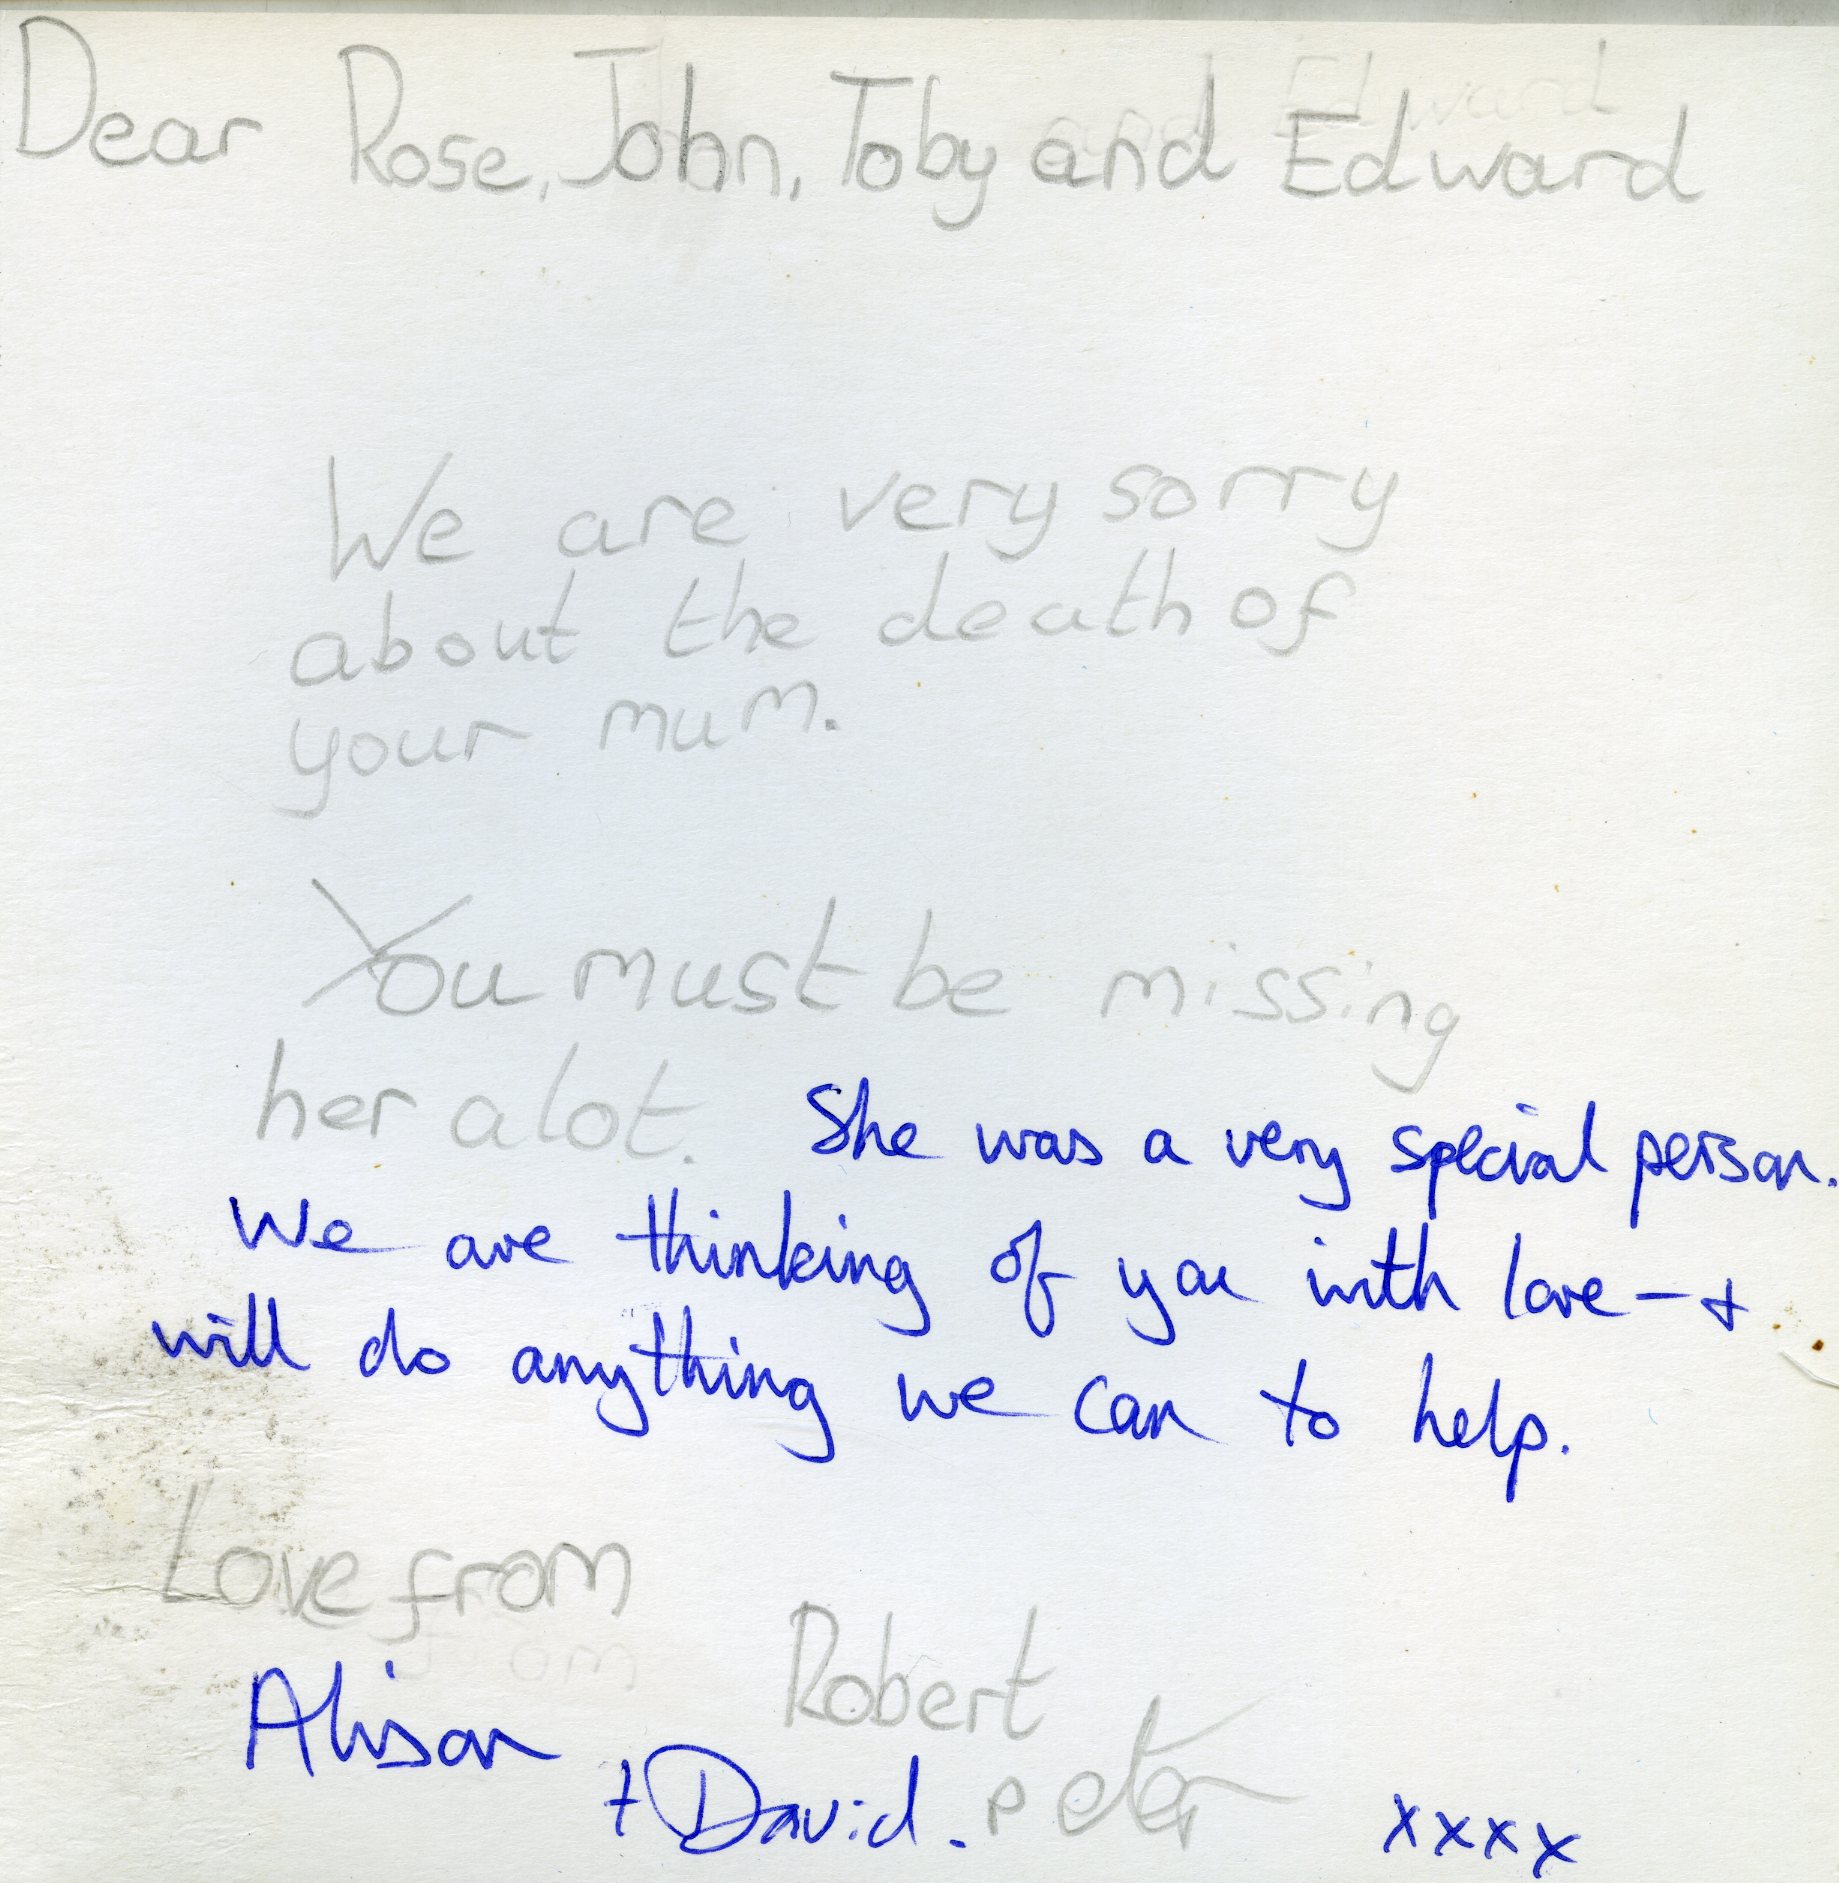 Dear Rose, John, Toby and Edward
We are very sorry
about the death of
your mum.
You must be missing
her alot. She was a very special person.
We are thinking of you with love - +
will do anything we can to help.
Love from
Robert
Alison
+ David. peter xxxx